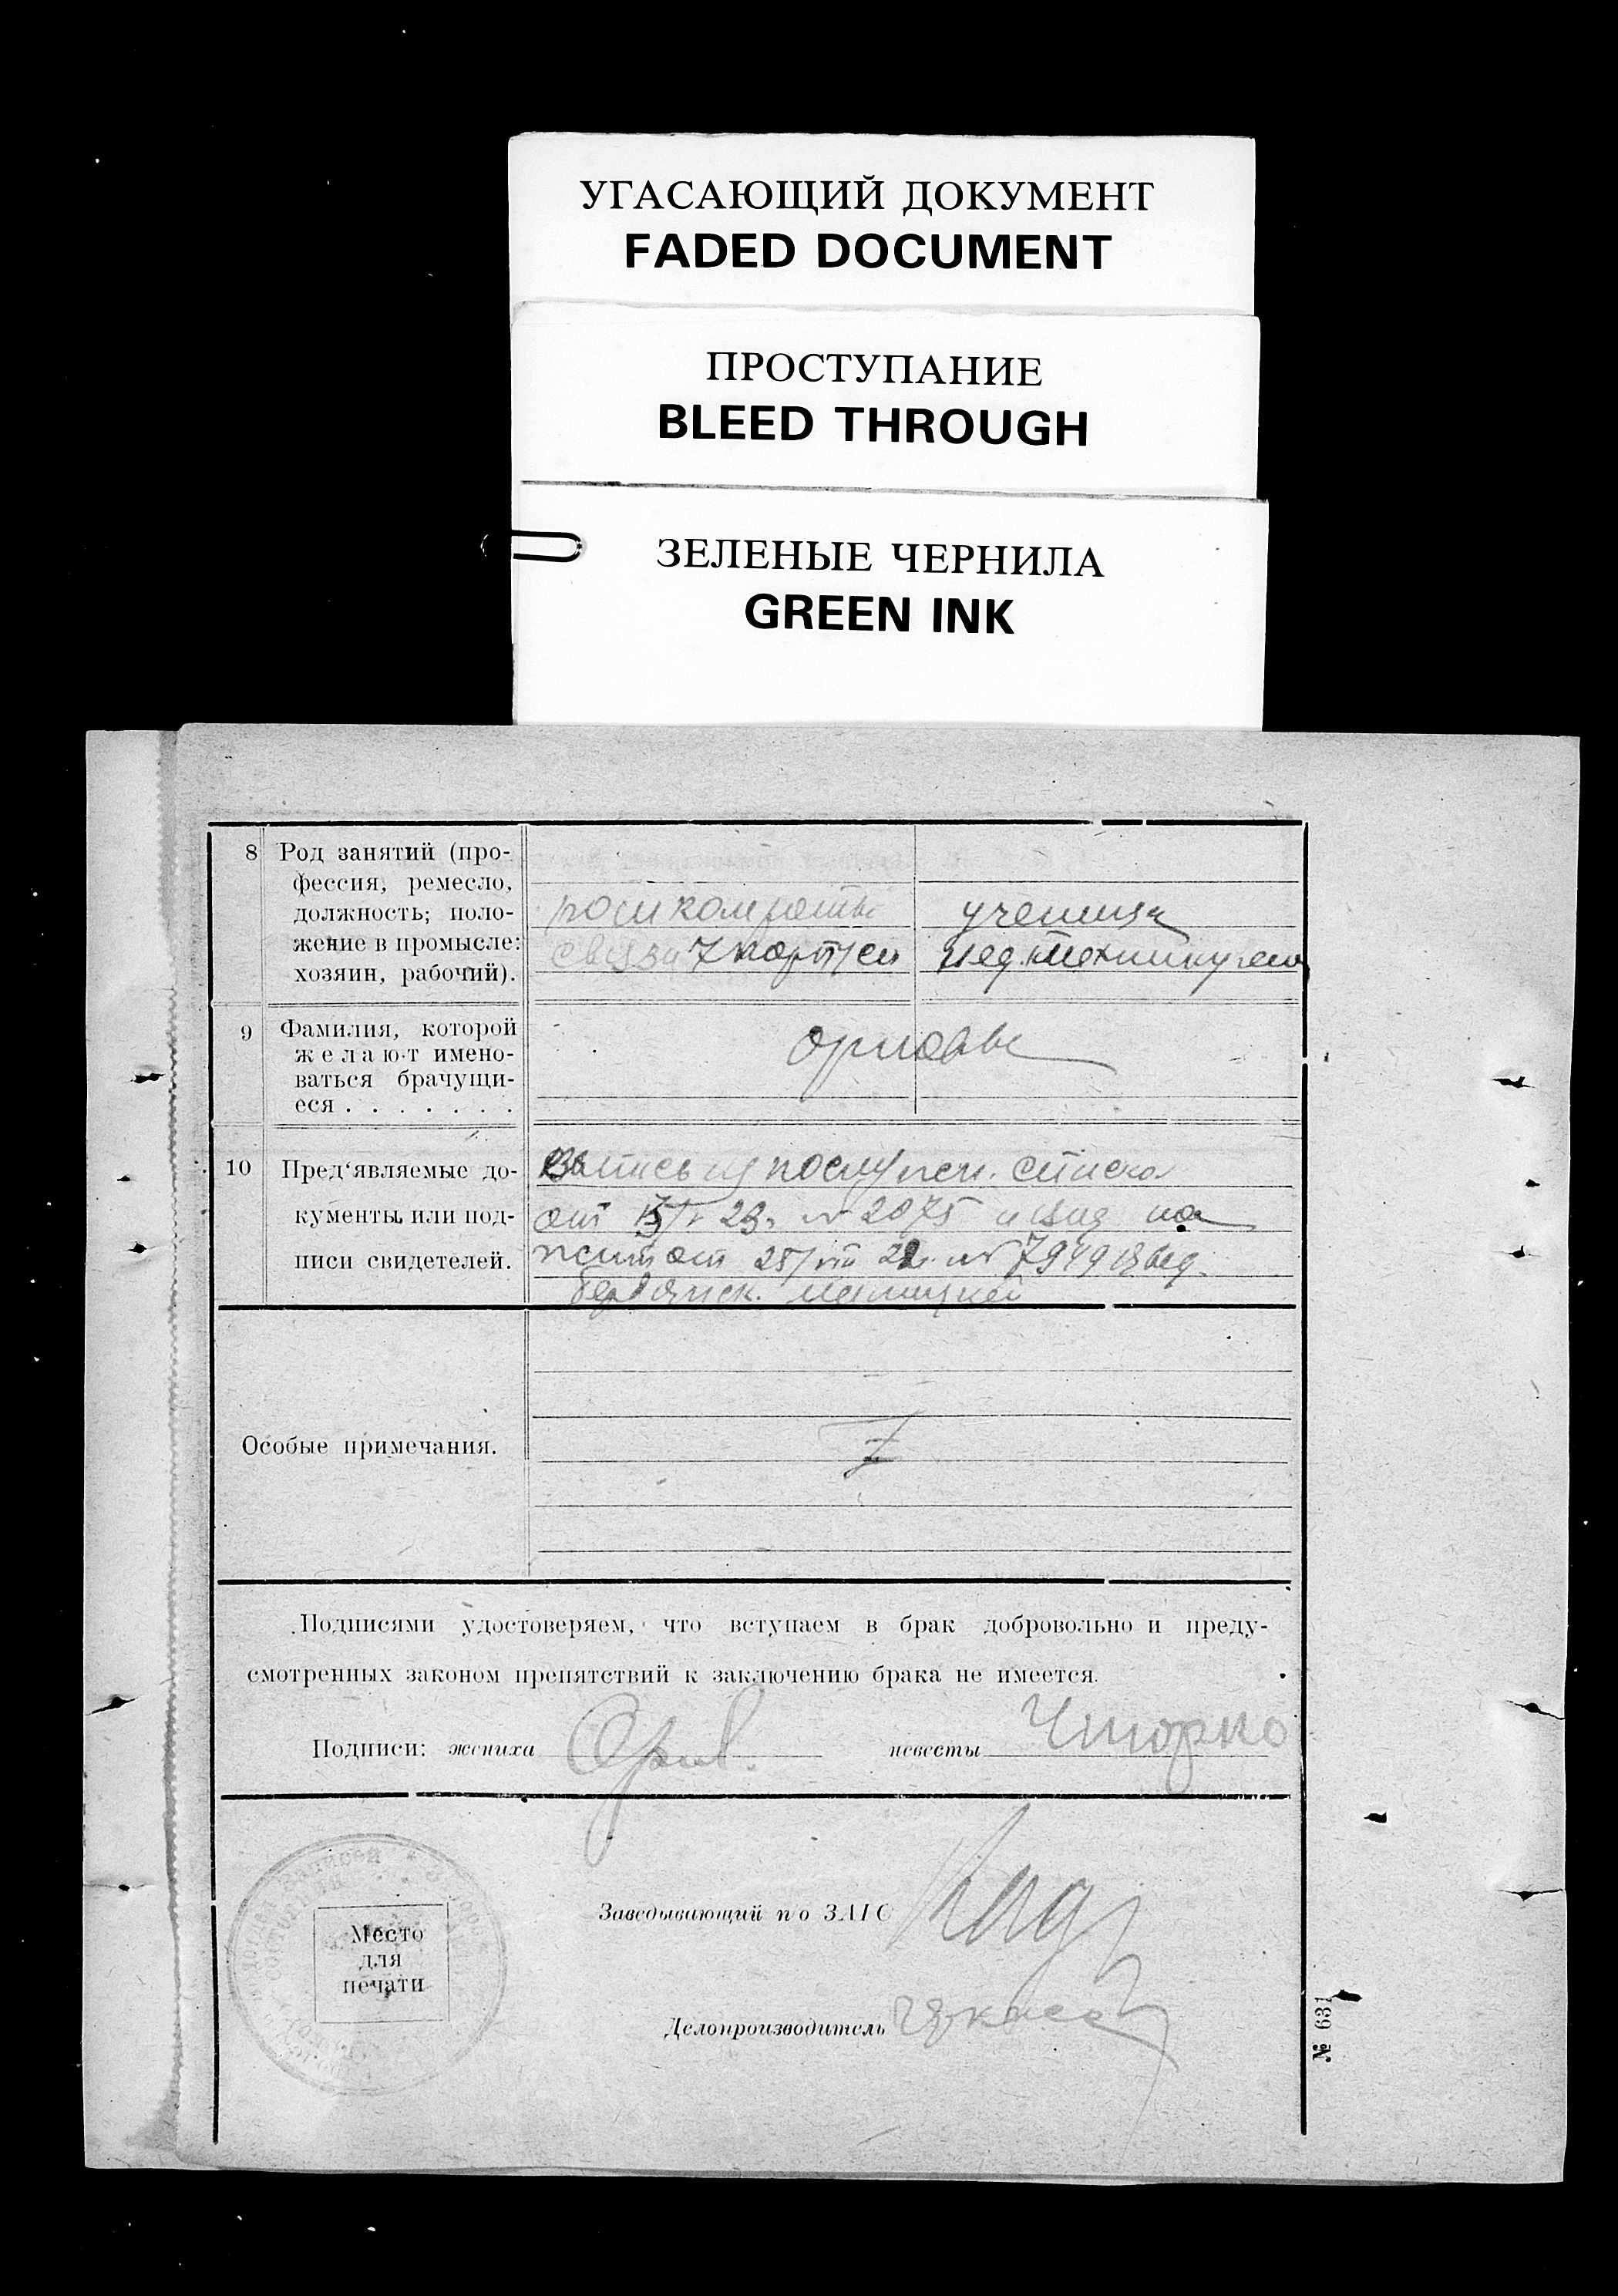 УГАСАЮЩИЙ ДОКУМЕНТ
FADED DOCUMENT
ПРОСТУПАНИЕ
BLEED THROUGH
ЗЕЛЕНЫЕ ЧЕРНИЛА
GREEN INK
8 Род занятий (про-
фессия, ремесло,
должность; поло-
жение в промысле:
хозяин, рабочий).
связи 7
ученица
мед. техникума
9 Фамилия, которой
желают имено-
ваться брачущи-
еся . . . . . . .
Орловы
10 Пред‘являемые до-
кументы или под-
писи свидетелей.
списка
от 23 № 2075 и вид на
жит от 25/VIII 22 г. № 7949
милицией
Особые примечания.
Z
Подписями удостоверяем, что вступаем в брак добровольно и преду-
смотренных законом препятствий к заключению брака не имеется.
Подписи: жениха невесты
Заведывающий п/о ЗАГС
Место
для
печати
Делопроизводитель
№ 631